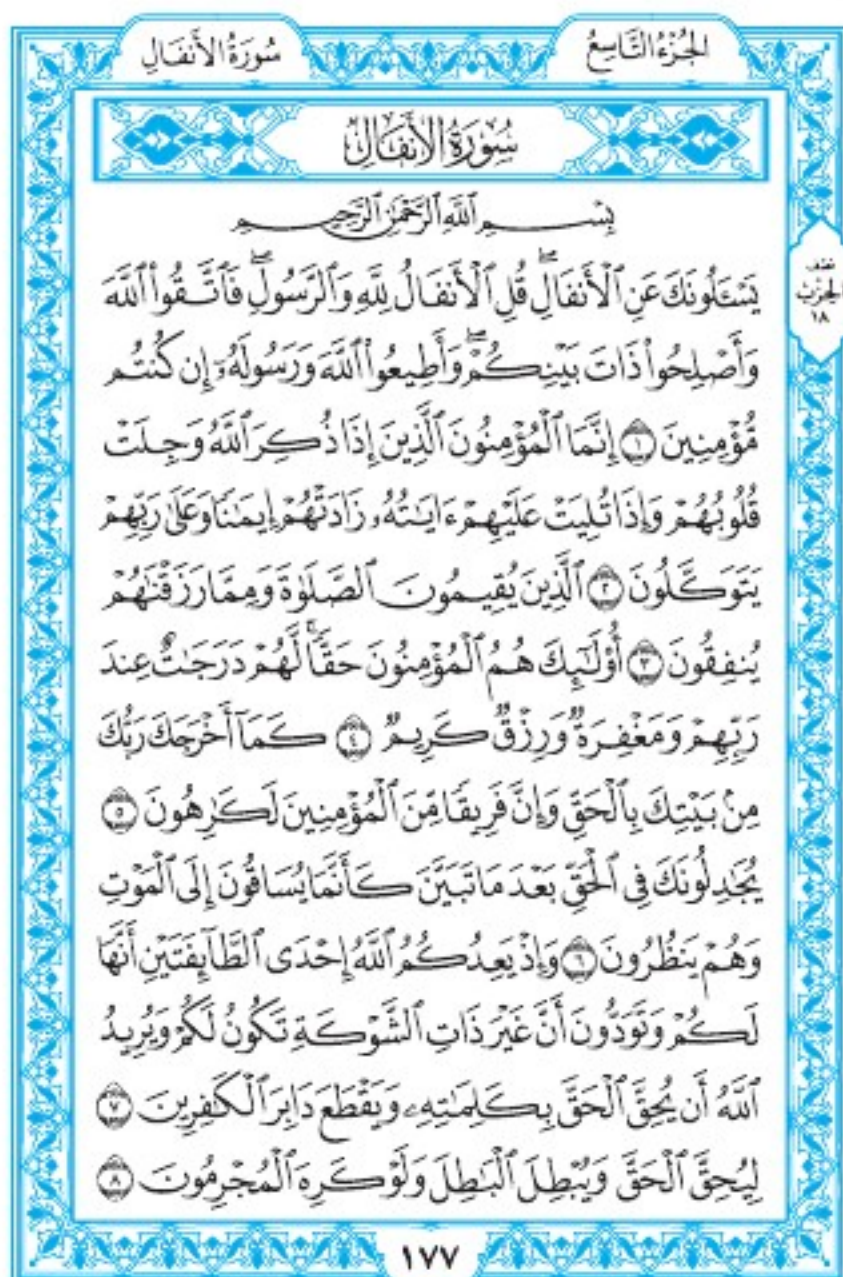 سُورَةُ الأَنفَالِ
الجُزْءُ التَّاسِعُ
سُورَةُ الأَنفَالِ
نصف
الحِزْب
١٨
بِسْمِ ٱللَّهِ ٱلرَّحْمَٰنِ ٱلرَّحِيمِ
يَسْـَٔلُونَكَ عَنِ ٱلْأَنفَالِۖ قُلِ ٱلْأَنفَالُ لِلَّهِ وَٱلرَّسُولِۖ فَٱتَّقُوا۟ ٱللَّهَ
وَأَصْلِحُوا۟ ذَاتَ بَيْنِكُمْۖ وَأَطِيعُوا۟ ٱللَّهَ وَرَسُولَهُۥٓ إِن كُنتُم
مُّؤْمِنِينَ ١ إِنَّمَا ٱلْمُؤْمِنُونَ ٱلَّذِينَ إِذَا ذُكِرَ ٱللَّهُ وَجِلَتْ
قُلُوبُهُمْ وَإِذَا تُلِيَتْ عَلَيْهِمْ ءَايَٰتُهُۥ زَادَتْهُمْ إِيمَٰنًا وَعَلَىٰ رَبِّهِمْ
يَتَوَكَّلُونَ ٢ ٱلَّذِينَ يُقِيمُونَ ٱلصَّلَوٰةَ وَمِمَّا رَزَقْنَٰهُمْ
يُنفِقُونَ ٣ أُو۟لَٰٓئِكَ هُمُ ٱلْمُؤْمِنُونَ حَقًّاۚ لَّهُمْ دَرَجَٰتٌ عِندَ
رَبِّهِمْ وَمَغْفِرَةٌ وَرِزْقٌ كَرِيمٌ ٤ كَمَآ أَخْرَجَكَ رَبُّكَ
مِنۢ بَيْتِكَ بِٱلْحَقِّ وَإِنَّ فَرِيقًا مِّنَ ٱلْمُؤْمِنِينَ لَكَٰرِهُونَ ٥
يُجَٰدِلُونَكَ فِى ٱلْحَقِّ بَعْدَ مَا تَبَيَّنَ كَأَنَّمَا يُسَاقُونَ إِلَى ٱلْمَوْتِ
وَهُمْ يَنظُرُونَ ٦ وَإِذْ يَعِدُكُمُ ٱللَّهُ إِحْدَى ٱلطَّآئِفَتَيْنِ أَنَّهَا
لَكُمْ وَتَوَدُّونَ أَنَّ غَيْرَ ذَاتِ ٱلشَّوْكَةِ تَكُونُ لَكُمْ وَيُرِيدُ
ٱللَّهُ أَن يُحِقَّ ٱلْحَقَّ بِكَلِمَٰتِهِۦ وَيَقْطَعَ دَابِرَ ٱلْكَٰفِرِينَ ٧
لِيُحِقَّ ٱلْحَقَّ وَيُبْطِلَ ٱلْبَٰطِلَ وَلَوْ كَرِهَ ٱلْمُجْرِمُونَ ٨
١٧٧